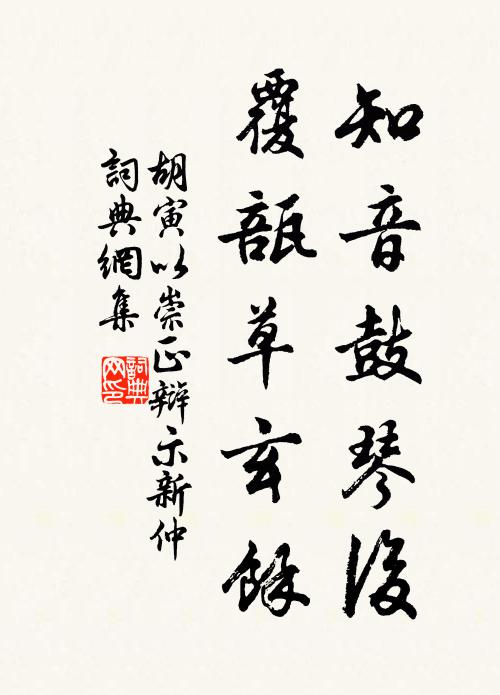 知音鼓琴後
覆瓿草玄餘
胡寅以崇正辯示新仲
詞典網集
詞典
网印